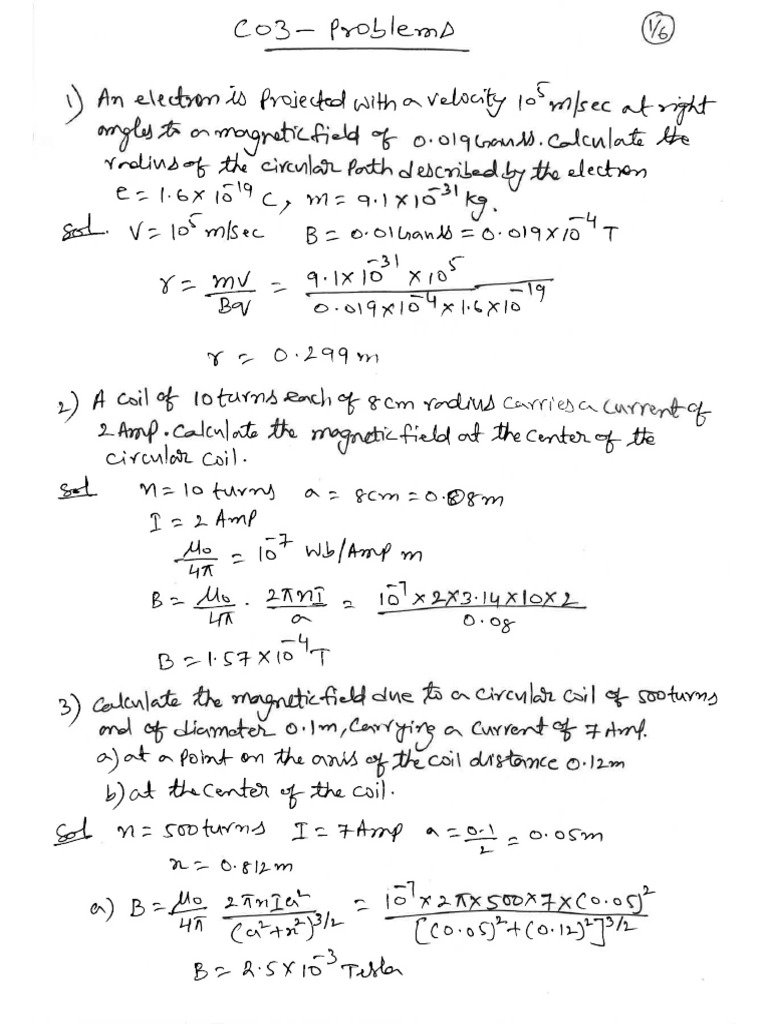 CO3 - Problems
1/6
1) An electron is Projected with a velocity 10^5 m/sec at right
angles to a magnetic field of 0.019 Gauss. Calculate the
radius of the circular Path described by the electron
e = 1.6 x 10^-19 C, m = 9.1 x 10^-31 kg.
Sol. V = 10^5 m/sec B = 0.01 Gauss = 0.019 x 10^-4 T
r = mv/Bq = 9.1x10^-31 x 10^5 / 0.019x10^-4 x 1.6x10^-19
r = 0.299 m
2) A coil of 10 turns each of 8cm radius carries a current of
2 Amp. Calculate the magnetic field at the center of the
circular coil.
Sol n = 10 turns a = 8cm = 0.08m
I = 2 Amp
μ0/4π = 10^-7 Wb/Amp m
B = μ0/4π . 2πnI/a = 10^-7 x 2x3.14x10x2 / 0.08
B = 1.57 x 10^-4 T
3) Calculate the magnetic field due to a circular coil of 500 turns
and of diameter 0.1m, Carrying a current of 7 Amp.
a) at a point on the axis of the coil distance 0.12m
b) at the center of the coil.
Sol n = 500 turns I = 7 Amp a = 0.1/2 = 0.05m
x = 0.812 m
a) B = μ0/4π 2πnIa^2/(a^2+x^2)^3/2 = 10^-7 x 2πx500x7x(0.05)^2 / [(0.05)^2+(0.12)^2]^3/2
B = 2.5x10^-3 Tesla